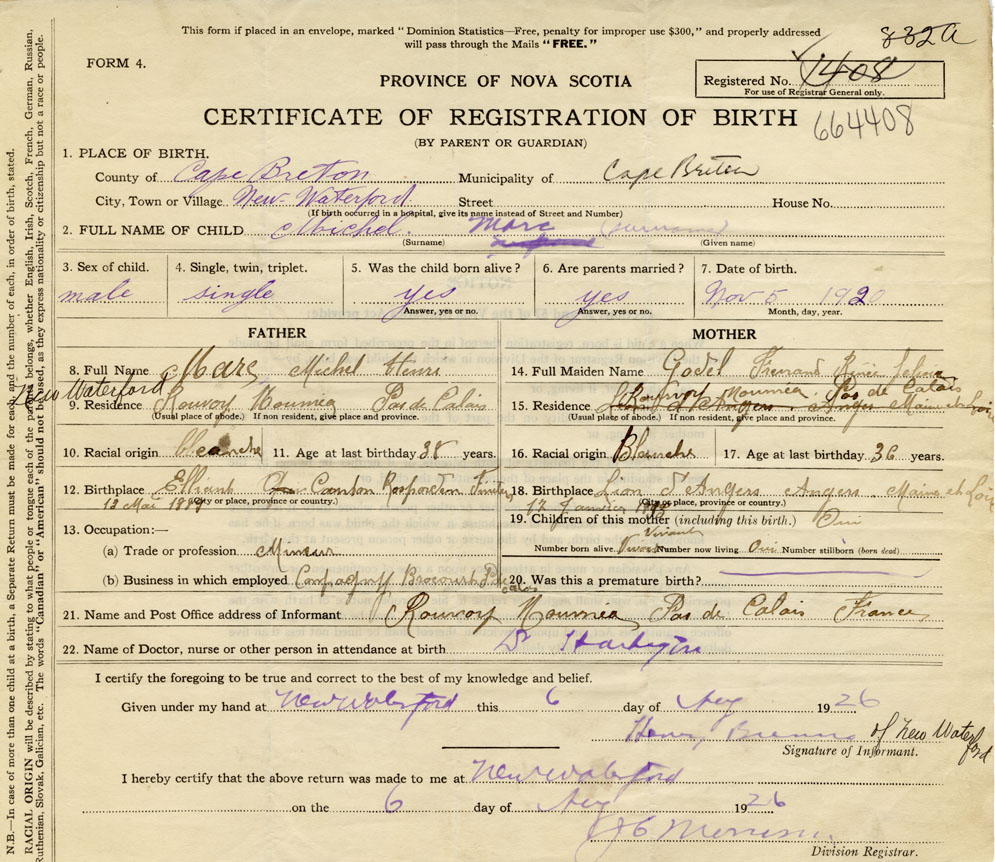 This form if placed in an envelope, marked "Dominion Statistics—Free, penalty for improper use $300," and properly addressed
will pass through the Mails "FREE."
832A
FORM 4.
PROVINCE OF NOVA SCOTIA
Registered No. 1408
For use of Registrar General only.
CERTIFICATE OF REGISTRATION OF BIRTH
664408
(BY PARENT OR GUARDIAN)
1. PLACE OF BIRTH.
County of Cape Breton Municipality of Cape Breton
City, Town or Village. New-Waterford. Street House No.
(If birth occurred in a hospital, give its name instead of Street and Number)
2. FULL NAME OF CHILD Michel. Marc (surname)
(Surname) (Given name)
3. Sex of child. 4. Single, twin, triplet. 5. Was the child born alive? 6. Are parents married? 7. Date of birth.
male single yes yes Nov 5 1920
Answer, yes or no. Answer, yes or no. Month, day, year.
FATHER MOTHER
8. Full Name Marc Michel Henri 14. Full Maiden Name Godel
New Waterford
9. Residence Rouvroy Noumea Pas de Calais 15. Residence Rouvroy Noumea Pas de Calais
(Usual place of abode.) If non resident, give place and province. (Usual place of abode.) If non resident, give place and province.
10. Racial origin blanche 11. Age at last birthday. 38 years. 16. Racial origin Blanche 17. Age at last birthday. 36 years.
12. Birthplace Elliant Canton Rosporden 18. Birthplace Lion d'Angers Angers Maine et Loire
(City or place, province or country.) (City or place, province or country.)
13. Occupation:— 19. Children of this mother (including this birth.) Oui
(a) Trade or profession Mineur Number born alive. Number now living Oui Number stillborn (born dead)
(b) Business in which employed 20. Was this a premature birth?
21. Name and Post Office address of Informant Rouvroy Noumea Pas de Calais France
22. Name of Doctor, nurse or other person in attendance at birth Dr
I certify the foregoing to be true and correct to the best of my knowledge and belief.
Given under my hand at New Waterford this 6 day of Aug 1926
Henry of New Waterford
Signature of Informant.
I hereby certify that the above return was made to me at New Waterford
on the 6 day of Aug 1926
Division Registrar.
N.B.—In case of more than one child at a birth, a Separate Return must be made for each and the number of each, in order of birth, stated.
RACIAL ORIGIN will be described by stating to what people or tongue each of the parents belongs, whether English, Irish, Scotch, French, German, Russian,
Ruthenian, Slovak, Galician, etc. The words "Canadian" or "American" should not be used, as they express nationality or citizenship but not a race or people.